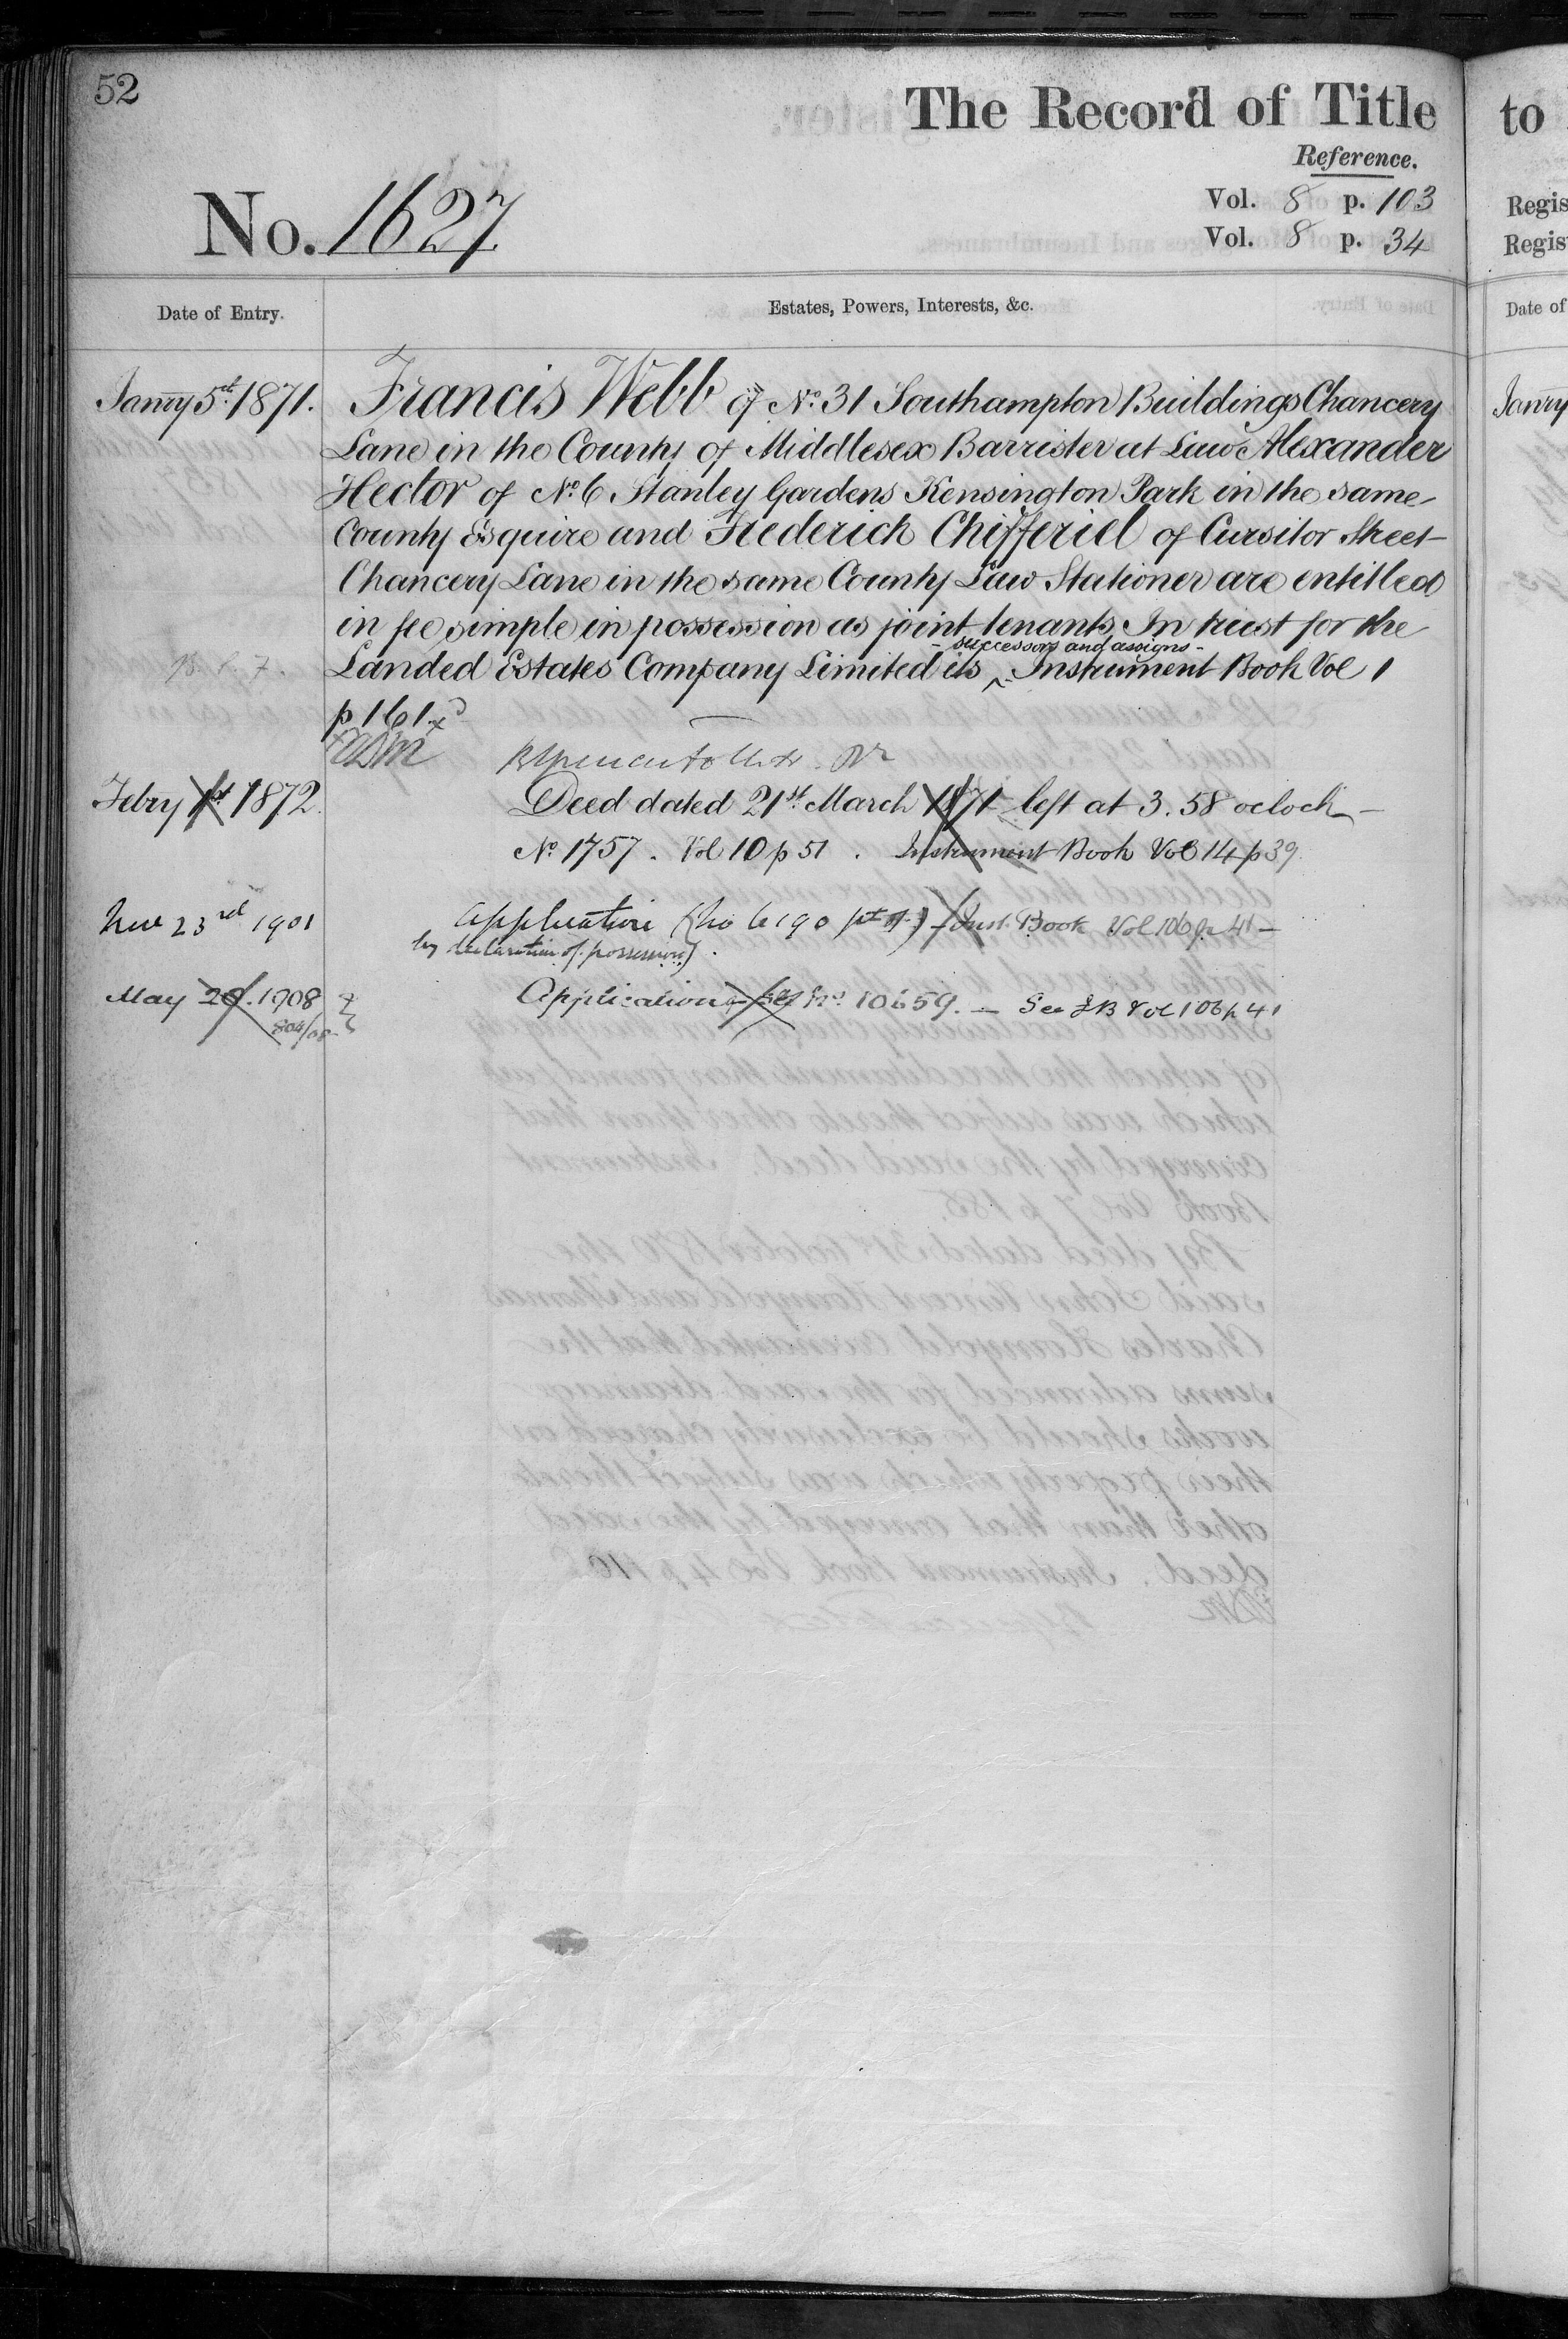 52
The Record of Title
Reference.
No. 1627
Vol. 8 p. 103
Vol. 8 p. 34
Date of Entry.
Estates, Powers, Interests, &c.
Janry 5th 1871.
Francis Webb of No. 31 Southampton Buildings Chancery
Lane in the County of Middlesex Barrister at Law Alexander
Hector of No. 6 Stanley Gardens Kensington Park in the same
County Esquire and Frederick Chifferiel of Cursitor Street
Chancery Lane in the same County Law Stationer are entitled
in fee simple in possession as joint tenants In trust for the
- successors and assigns -
Landed Estates Company Limited its ‸ Instrument Book Vol 1
p 161
Febry 1st 1872.
Deed dated 21st March 1871 left at 3.58 oclock
No. 1757. Vol 10 p 51. Instrument Book Vol 14 p 39.
23rd 1901
Application (No 6190 pt of) - Inst. Book Vol 106 p 41 -
by declaration of possession).
May 20. 1908
804/08
Application No. 10659. - See IB Vol 106 p 41
to
Regis
Regis
Date of
Janry